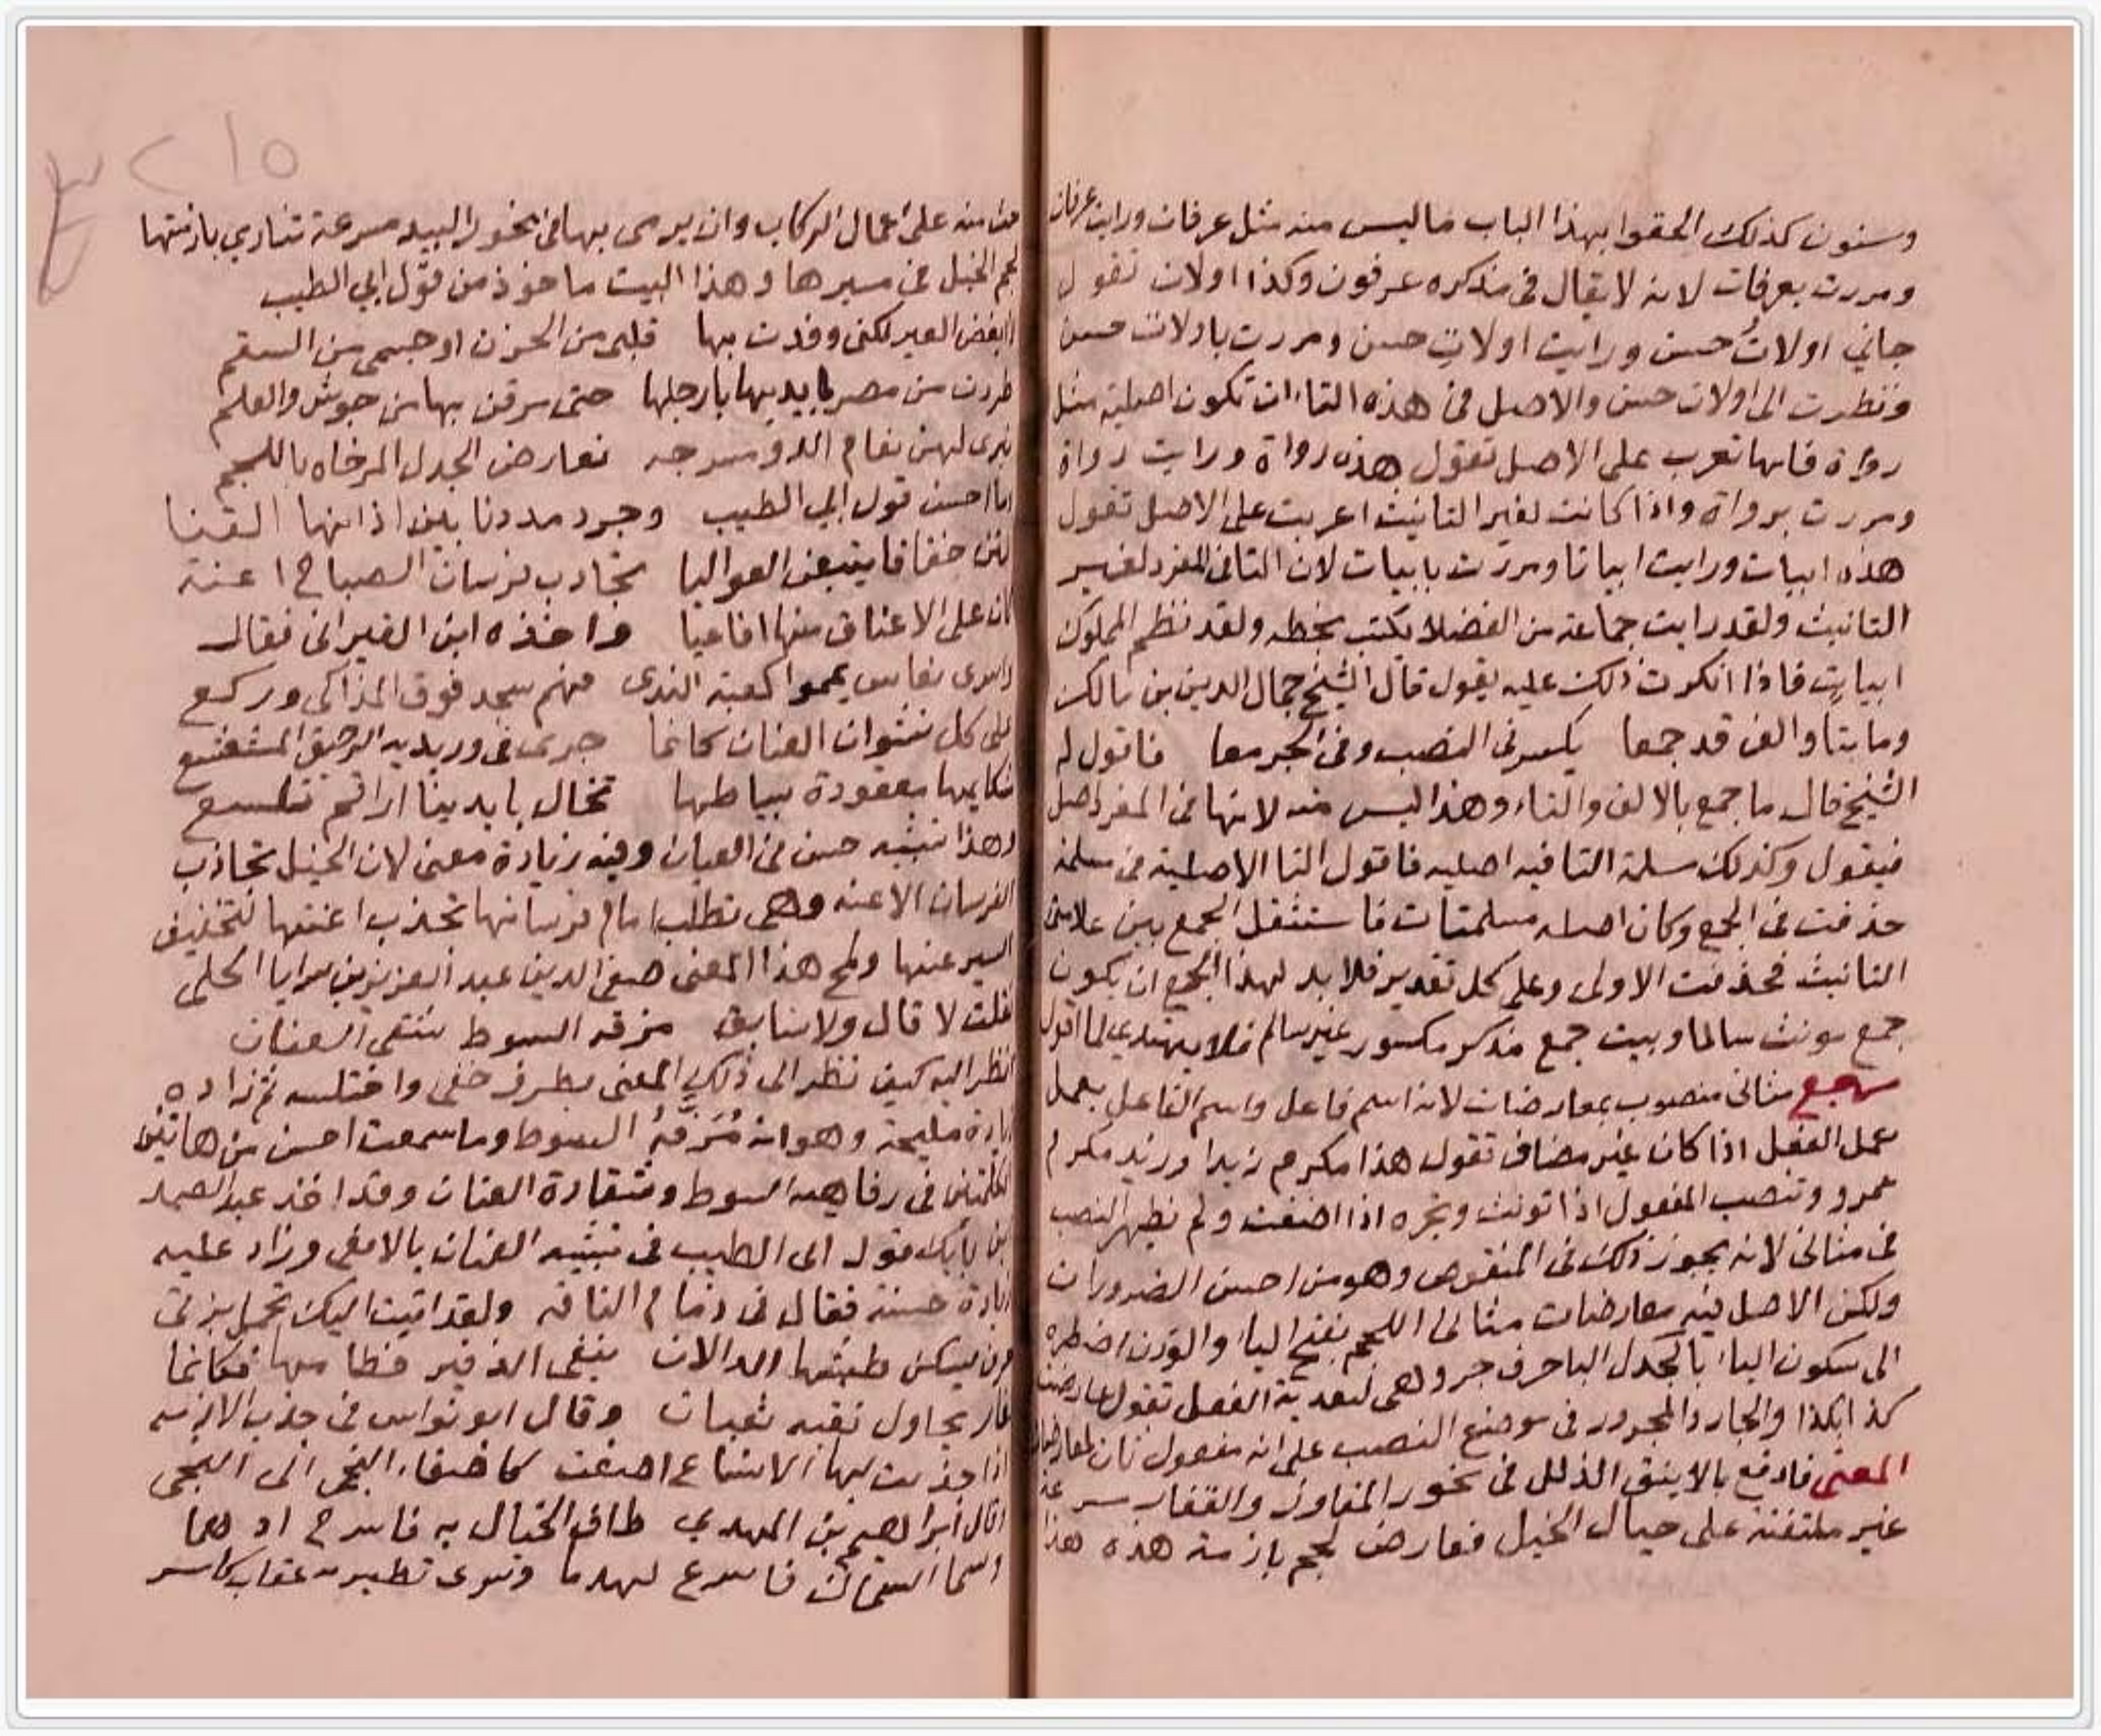 وسنون كذلك الحقوا بهذا الباب ما ليس منه مثل عرفات ورايت عرفات
ومررت بعرفات لانه لا يقال في مذكره عرفون وكذا اولات تقول
جاني اولاتُ حسن ورايت اولاتِ حسن ومررت باولات حسن
ونظرت الى اولات حسن والاصل في هذه التاء ان تكون اصلية مثل
رواة فانها تعرب على الاصل تقول هذه رواة ورايت رواة
ومررت برواة واذا كانت لغير التانيث اعربت على الاصل تقول
هذه ابيات ورايت ابياتا ومررت بابيات لان التا في المفرد لغير
التانيث ولقد رايت جماعة من الفضلا يكتب بخطه ولقد نظم المملوك
ابياتٍ فاذا انكرت ذلك عليه يقول قال الشيخ جمال الدين بن مالك
وما بتا والف قد جمعا يكسر في النصب وفي الجر معا فاقول له
الشيخ قال ما جمع بالالف والتاء وهذا ليس منه لانها في المفرد اصل
فيقول وكذلك مسلمة التا فيه اصليه فاقول التا الاصلية في مسلمة
حذفت في الجمع وكان اصله مسلمتات فاستثقل الجمع بين علامتي
التانيث فحذفت الاولى وعلى كل تقدير فلا بد لهذا الجمع ان يكون
جمع مونث سالما وبيت جمع مذكر مكسور غير سالم فلا يهتدي لما اقول
مثاني منصوب بمعارضات لانه اسم فاعل واسم الفاعل يعمل
عمل الفعل اذا كان غير مضاف تقول هذا مكرم زيدا وزيد مكرم
عمرو وتنصب المفعول اذا نونت وتجره اذا اضفت ولم يظهر النصب
في مثاني لانه يجوز ذلك في المنقوص وهو من احسن الضرورات
ولكن الاصل فيه معارضات مثاني اللجم بفتح اليا والوزن اضطره
الى سكون الياء بالجدل البا حرف جر وهي لتعدية الفعل تقول عارضت
كذا بكذا والجار والمجرور في موضع النصب على انه مفعول ثان لمعارضات
المعنى فادفع بالاينق الذلل في نحور المفاوز والقفار
غير ملتفتة على حيال الخيل فعارض لجم بازمة هذه هذا
٢١٥
منه على اعمال الركاب وان يرمى بها في نحور البيد مسرعة تباري بازمتها
لجم الخيل في سيرها وهذا البيت ماخوذ من قول ابي الطيب
لا ابغض العير لكني وقدت بها قلبي من الحزن او جسمي من السقم
طردت من مصر بايديها بارجلها حتى مرقن بها من جوش والعلم
تبرى لهن نعام الدو مسرجه تعارض الجدل المرخاه باللجم
ما احسن قول ابي الطيب وجرد مددنا بين اذانها القنا
فبتن خفافا يتبعن العواليا تجاذب فرسان الصباح اعنة
كان على الاعناق منها افاعيا واخذه ابن القيسراني فقال
يمموا كعبة الندى فهم سجد فوق المذاكي وركع
على كل نشوان العنان كانما جرى في وريديه الرحيق المشعشع
شكايمها معقودة بسياطها تخال بايدينا اراقم تلسع
وهذا تشبيه حسن في العيان وفيه زيادة معنى لان الخيل تجاذب
الفرسان الاعنه وهي تطلب امام فرسانها بجذب اعنتها لتخفيف
السير عنها ولمح هذا المعنى صفي الدين عبد العزيز بن سرايا الحلي
فقلت لا قال ولا سابق مرفه السوط شقي العنان
انظر اليه كيف نظر الى ذلك المعنى بطرف خفي واختلسه ثم زاده
زيادة مليحة وهو انه مُرَفَّهُ السوط وما سمعت احسن من هاتين
الكلمتين في رفاهية السوط وشقاوة العنان وقد اخذ عبد الصمد
بن بابك قول ابي الطيب في تشبيه العنان بالافعى وزاد عليه
زيادة حسنة فقال في زمام الناقة ولقد اتيت اليك تحمل بزتي
يسكن طيشها ينفي الزفير خطامها فكانما
غار يحاول نقبه ثعبان وقال ابو نواس في جذب الازمه
وقال ابراهيم بن المهدي طاف الخيال به فاسرج ادهما
فاسرع لهدما عقاب كاسر